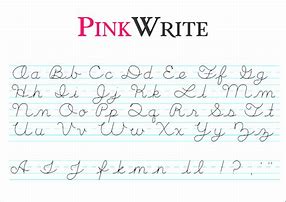 PINKWRITE
Aa Bb Cc Dd Ee Ff Gg
Hh Ii Jj Kk Ll Mm
Nn Oo Pp Qq Rr Ss Tt
Uu Vv Ww Xx Yy Zz
A I J f k m n u l ! ? . ' "